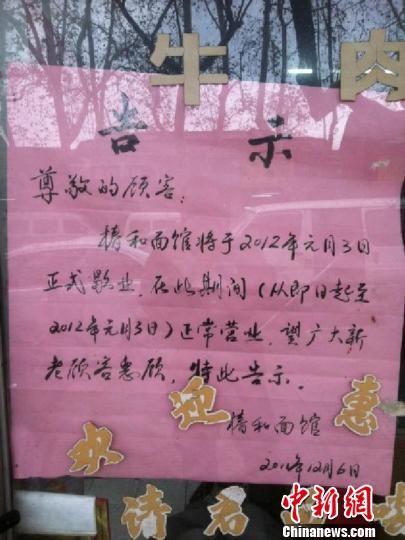 牛肉
告示
尊敬的顾客:
椿和面馆将于2012年元月3日
正式歇业,在此期间(从即日起至
2012年元月3日)正常营业,望广大新
老顾客惠顾,特此告示。
迎惠
椿和面馆
2011年12月6日
请
中新网
Chinanews.com